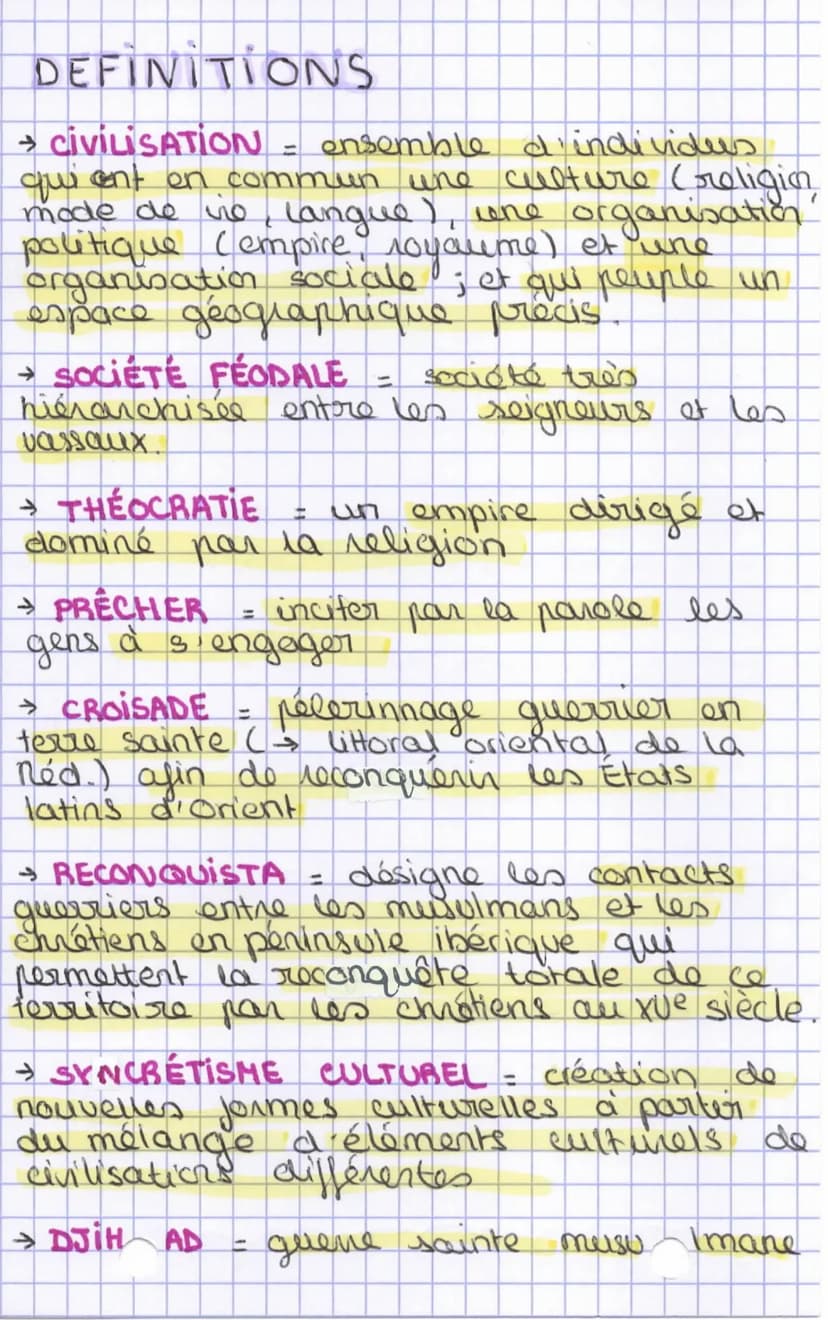 DEFiNiTiONS
→ CiViLiSATiON = ensemble d'individus
qui ont en commun une culture (religion,
mode de vie, langue), une organisation
politique (empire, royaume) et une
organisation sociale ; et qui peuple un
espace géographique précis.
→ SOCiÉTÉ FÉODALE = société très
hiérarchisée entre les seigneurs et les
vassaux.
→ THÉOCRATiE = un empire dirigé et
dominé par la religion
→ PRÊCHER = inciter par la parole les
gens à s'engager
→ CROiSADE = pélerinnage guerrier en
terre sainte (→ littoral oriental de la
Méd.) afin de reconquérir les États
latins d'Orient
→ RECONQUiSTA = désigne les contacts
guerriers entre les musulmans et les
chrétiens en péninsule ibérique qui
permettent la reconquête totale de ce
territoire par les chrétiens au XVe siècle.
→ SYNCRÉTiSME CULTUREL = création de
nouvelles formes culturelles à partir
du mélange d'éléments culturels de
civilisations différentes
→ DJiHAD = guerre sainte musulmane